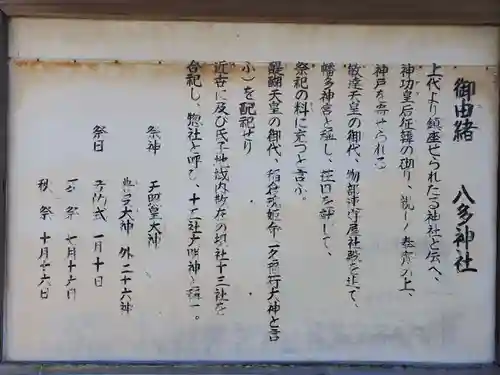 御由緒 八多神社
上代より鎮座せられたる神社と伝へ、
神功皇后征韓の砌り、親しく奉斎の上、
神戸を寄せられる
敏達天皇の御代、物部守屋社殿を建て、
幡多神宮と証し、荘田を許して、
祭祀の料に充つと言ふ。
醍醐天皇の御代、稲倉魂姫命（又稲荷大神と言
ふ）を配祀せり
近古に及び氏子地域内散在の坦社十三社を
合祀し、惣社と呼び、十二社大明神と称す。
祭神 天照皇大神
豊受大神 外二十六神
祭日 一月十日
夏祭 七月十六日
秋祭 十月十六日